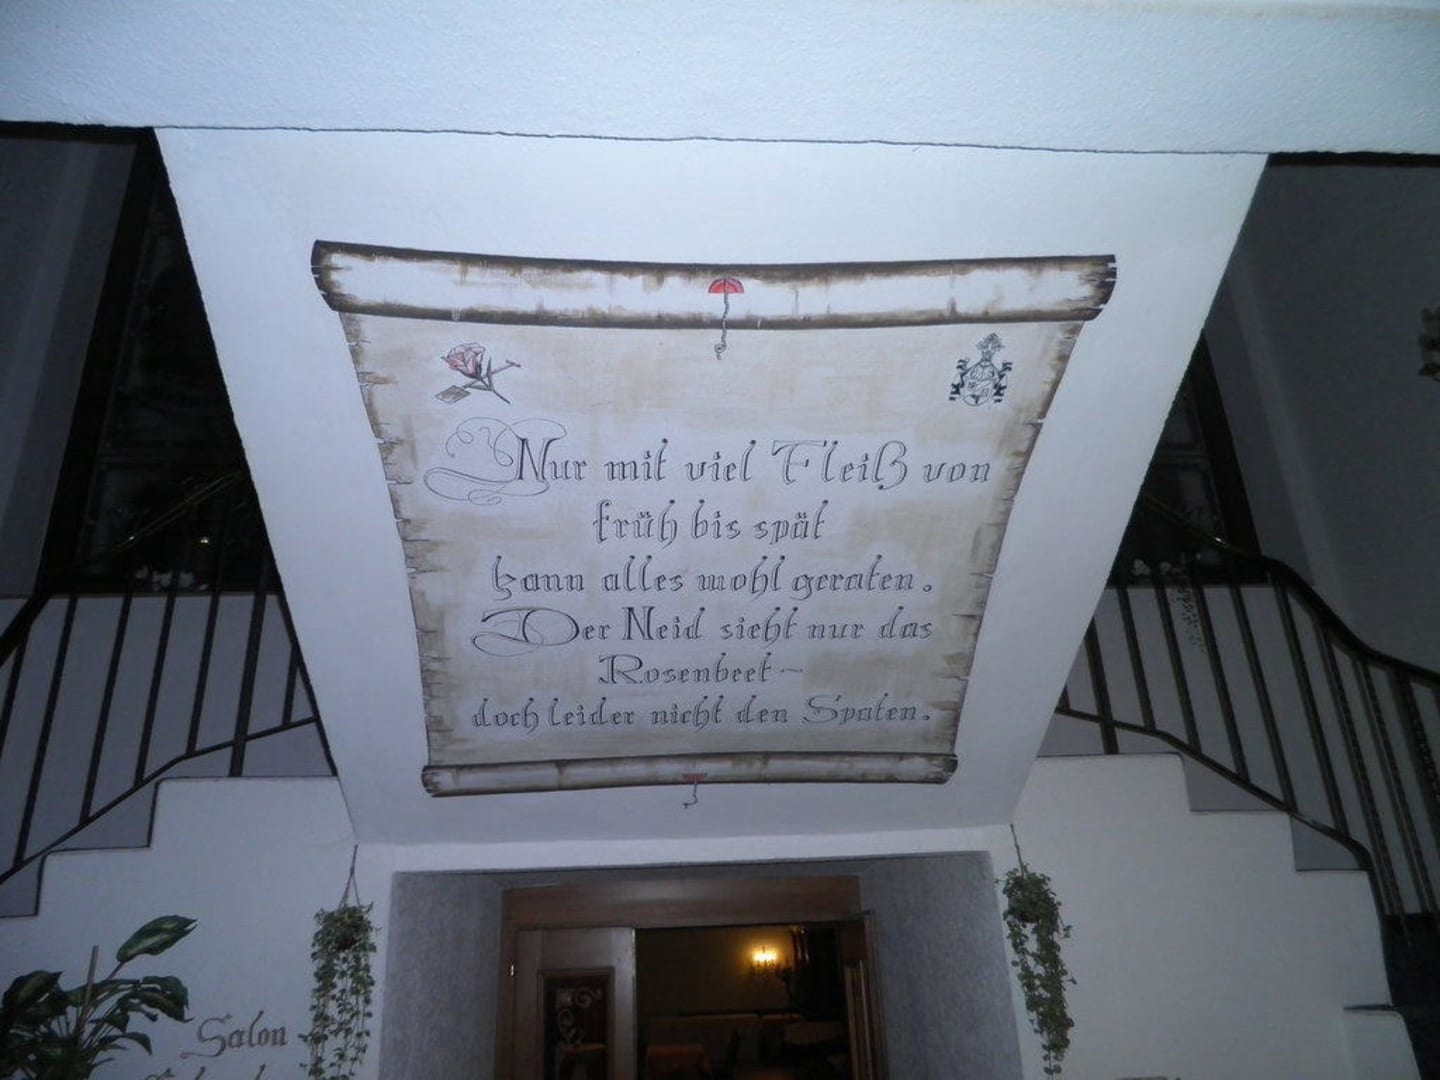 Nur mit viel Fleiß von
früh bis spät
kann alles wohl geraten.
Der Neid sieht nur das
Rosenbeet –
doch leider nicht den Spaten.
Salon